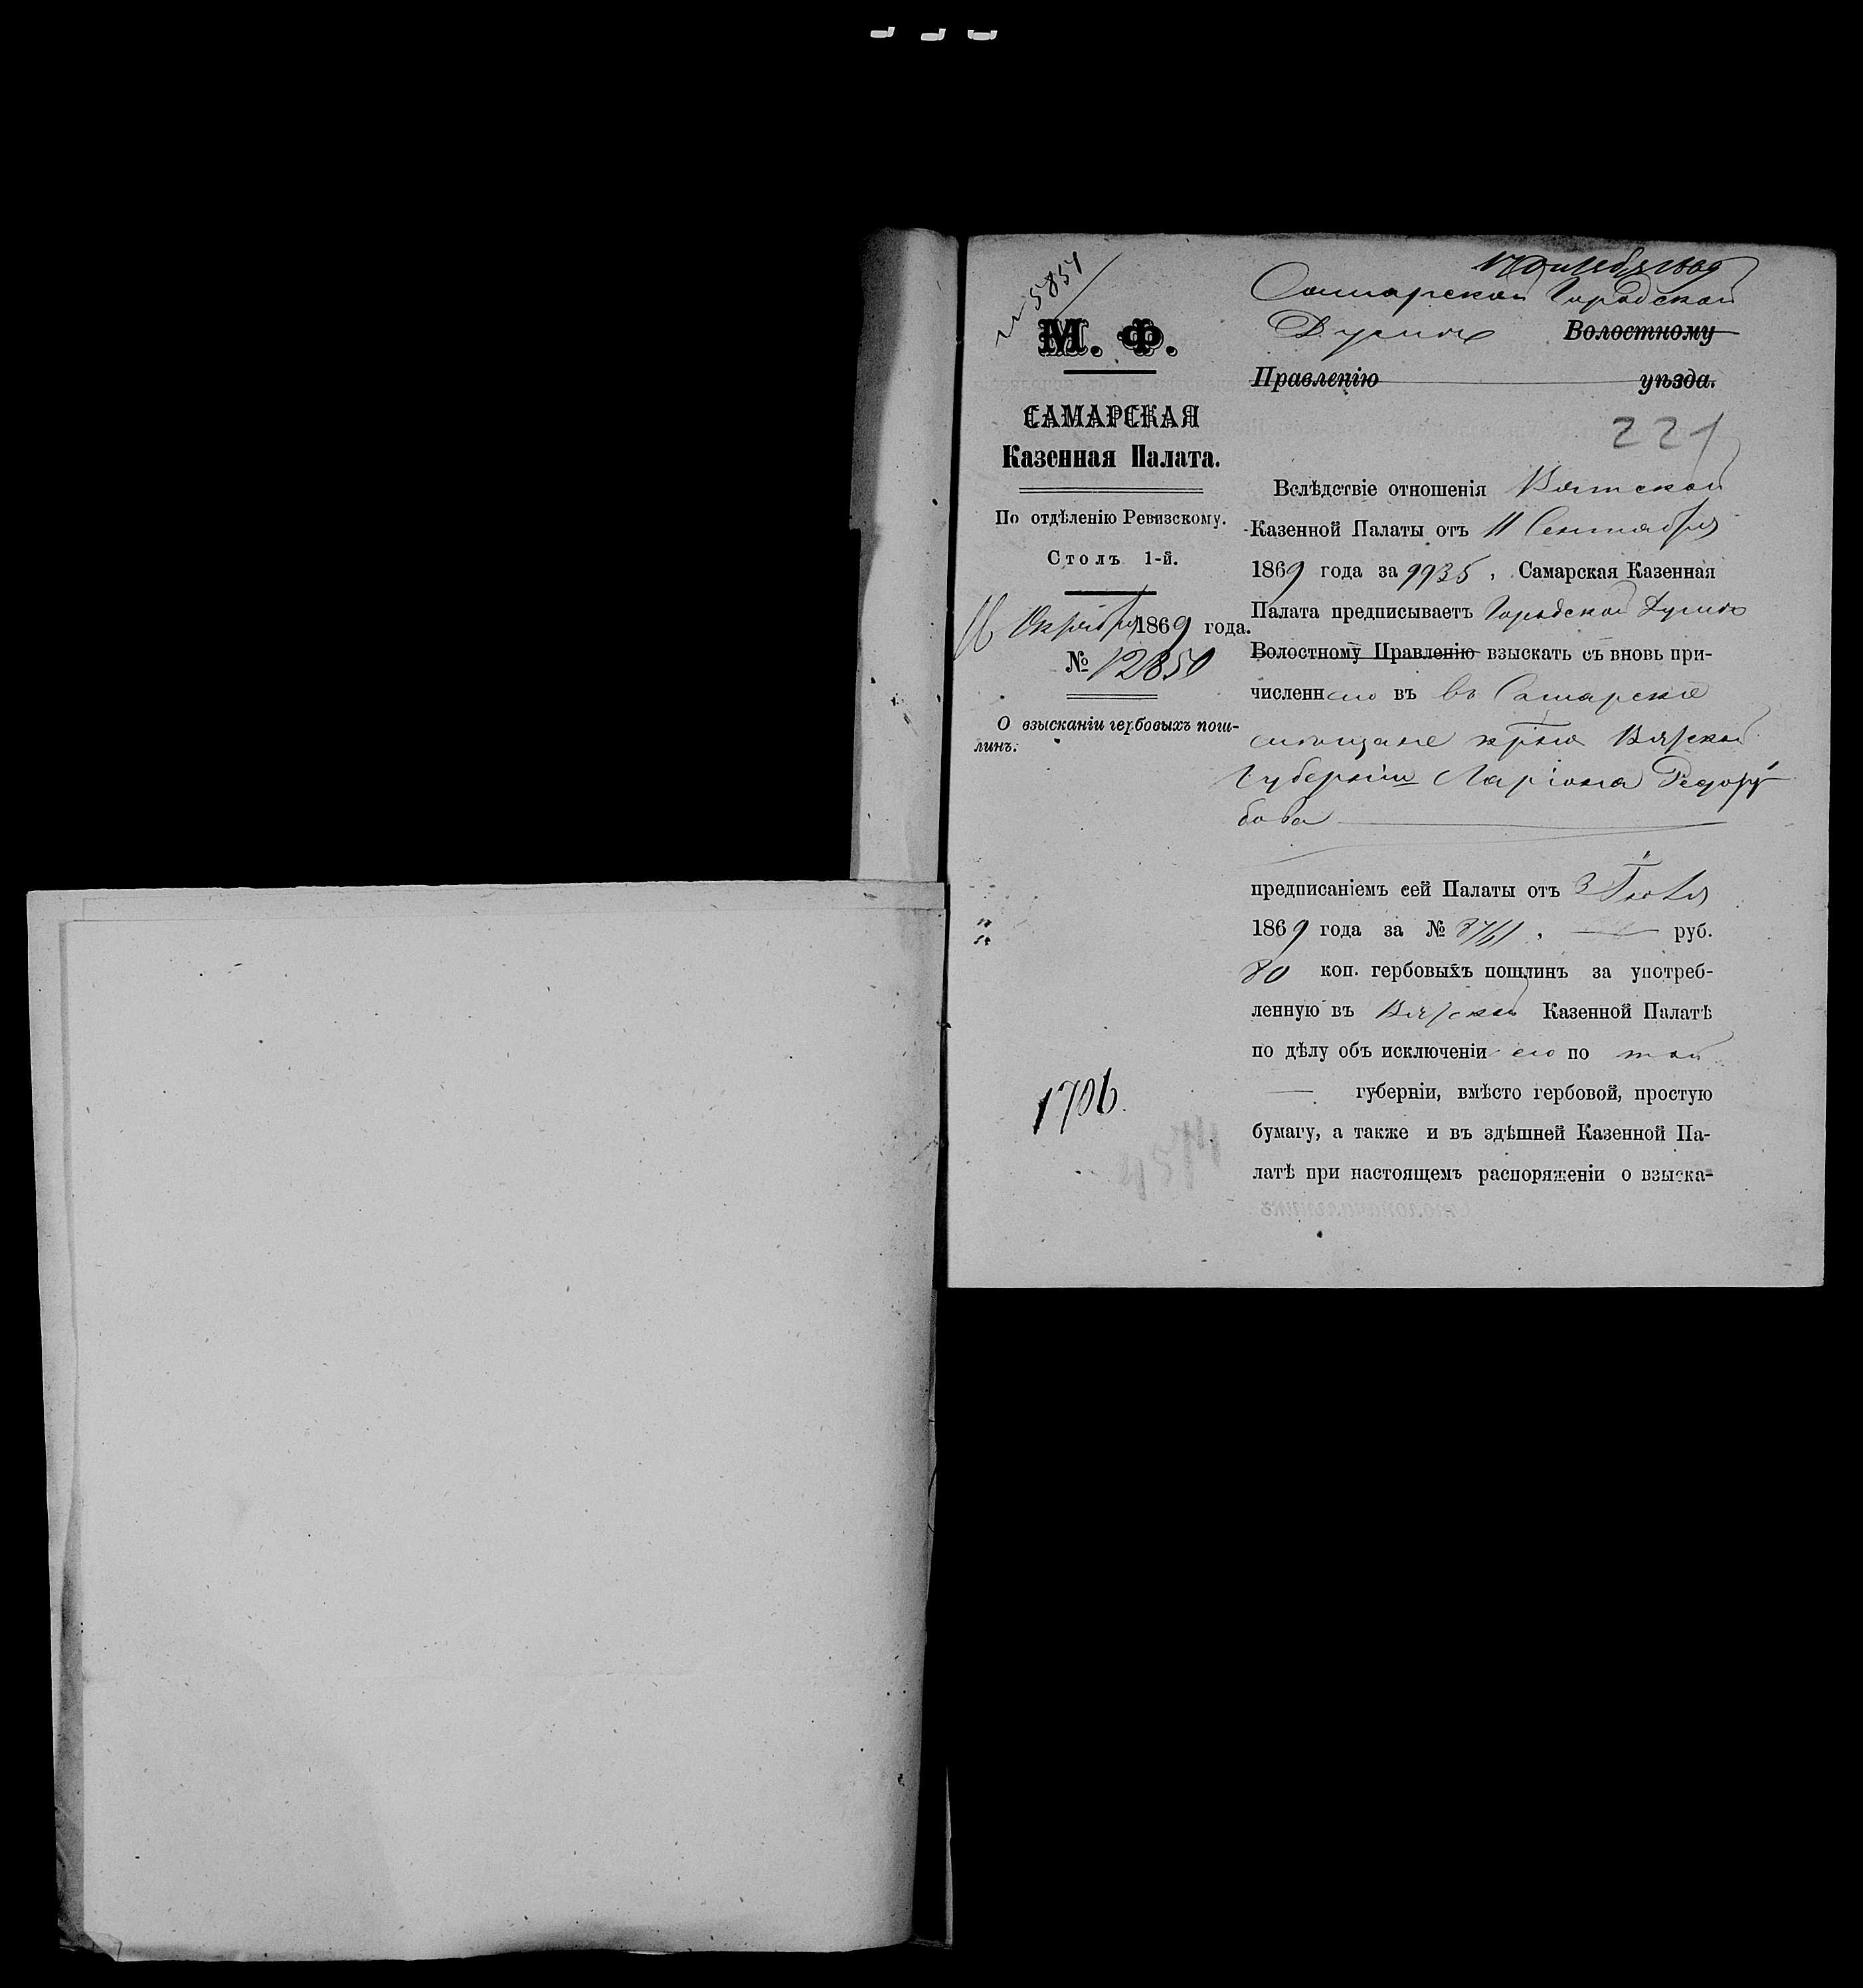 № 5854
М. Ф.
САМАРСКАЯ
Казенная Палата.
По отдѣленію Ревизскому.
Столъ 1-й.
16 Октября 1869 года.
№ 12850
О взысканіи гербовыхъ пош-
линъ.
1706.
17 Октября 1869
Самарской Городской
Думѣ Волостному
Правленію уѣзда.
221
Вслѣдствіе отношенія Вятской
Казенной Палаты отъ 11 Сентября
1869 года за 9935, Самарская Казенная
Палата предписываетъ Городской Думѣ
Волостному Правленію взыскать съ вновь при-
численнаго въ въ Самарскіе
мѣщане Вятской
Губерніи Ларіона
бова
предписаніемъ сей Палаты отъ 3 Іюля
1869 года за № 8761, — руб.
80 коп. гербовыхъ пошлинъ за употреб-
ленную въ Вятской Казенной Палатѣ
по дѣлу объ исключеніи его по той
— губерніи, вмѣсто гербовой, простую
бумагу, а также и въ здѣшней Казенной Па-
латѣ при настоящемъ распоряженіи о взыска-